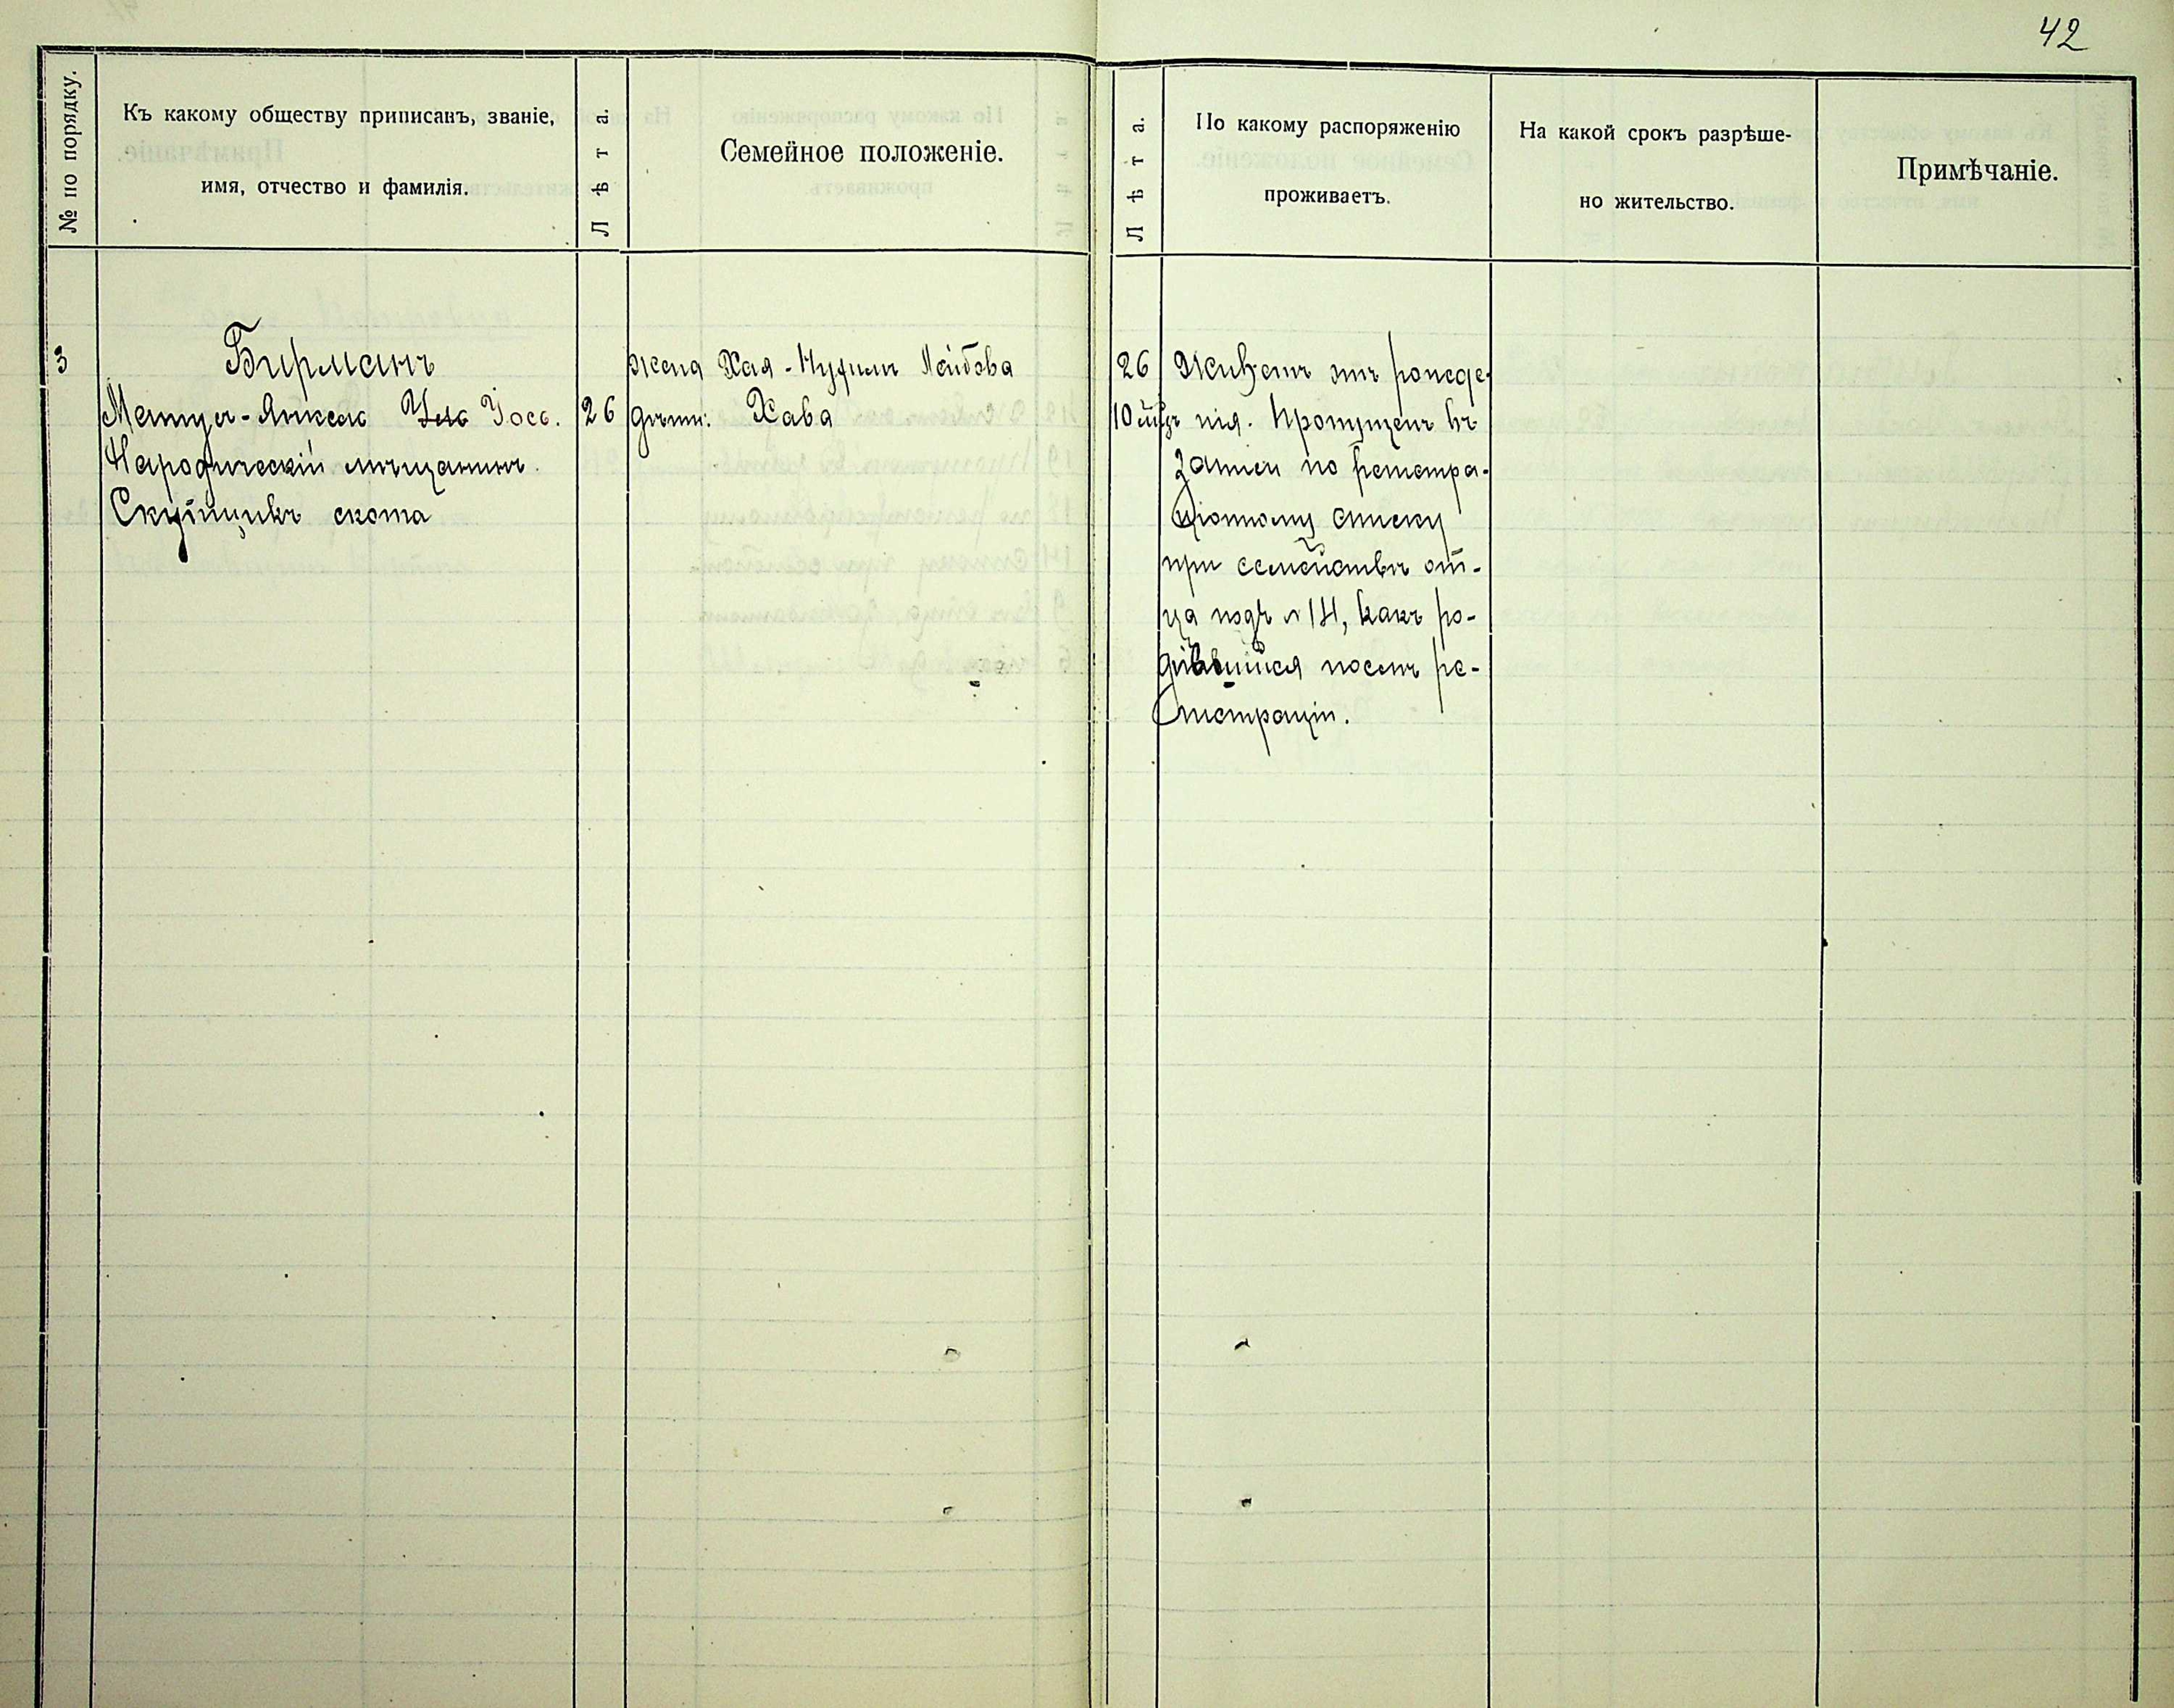 42
№ по порядку.
Къ какому обществу приписанъ, званіе,
имя, отчество и фамилія.
Лѣта.
Семейное положеніе.
Лѣта.
По какому распоряженію
проживаетъ.
На какой срокъ разрѣше-
но жительство.
Примѣчаніе.
3
Бирманъ
Янкель Іось.
Народическій мѣщанинъ.
Скупщикъ скота
26
жена Хая - Лейбова
дѣти: Хава
26
10 мѣ
Живетъ отъ рожде-
нія. Пропущенъ въ
записи по регистра-
ціонному списку
при семействѣ от-
ца подъ № 14, какъ ро-
дившійся послѣ ре-
гистраціи.